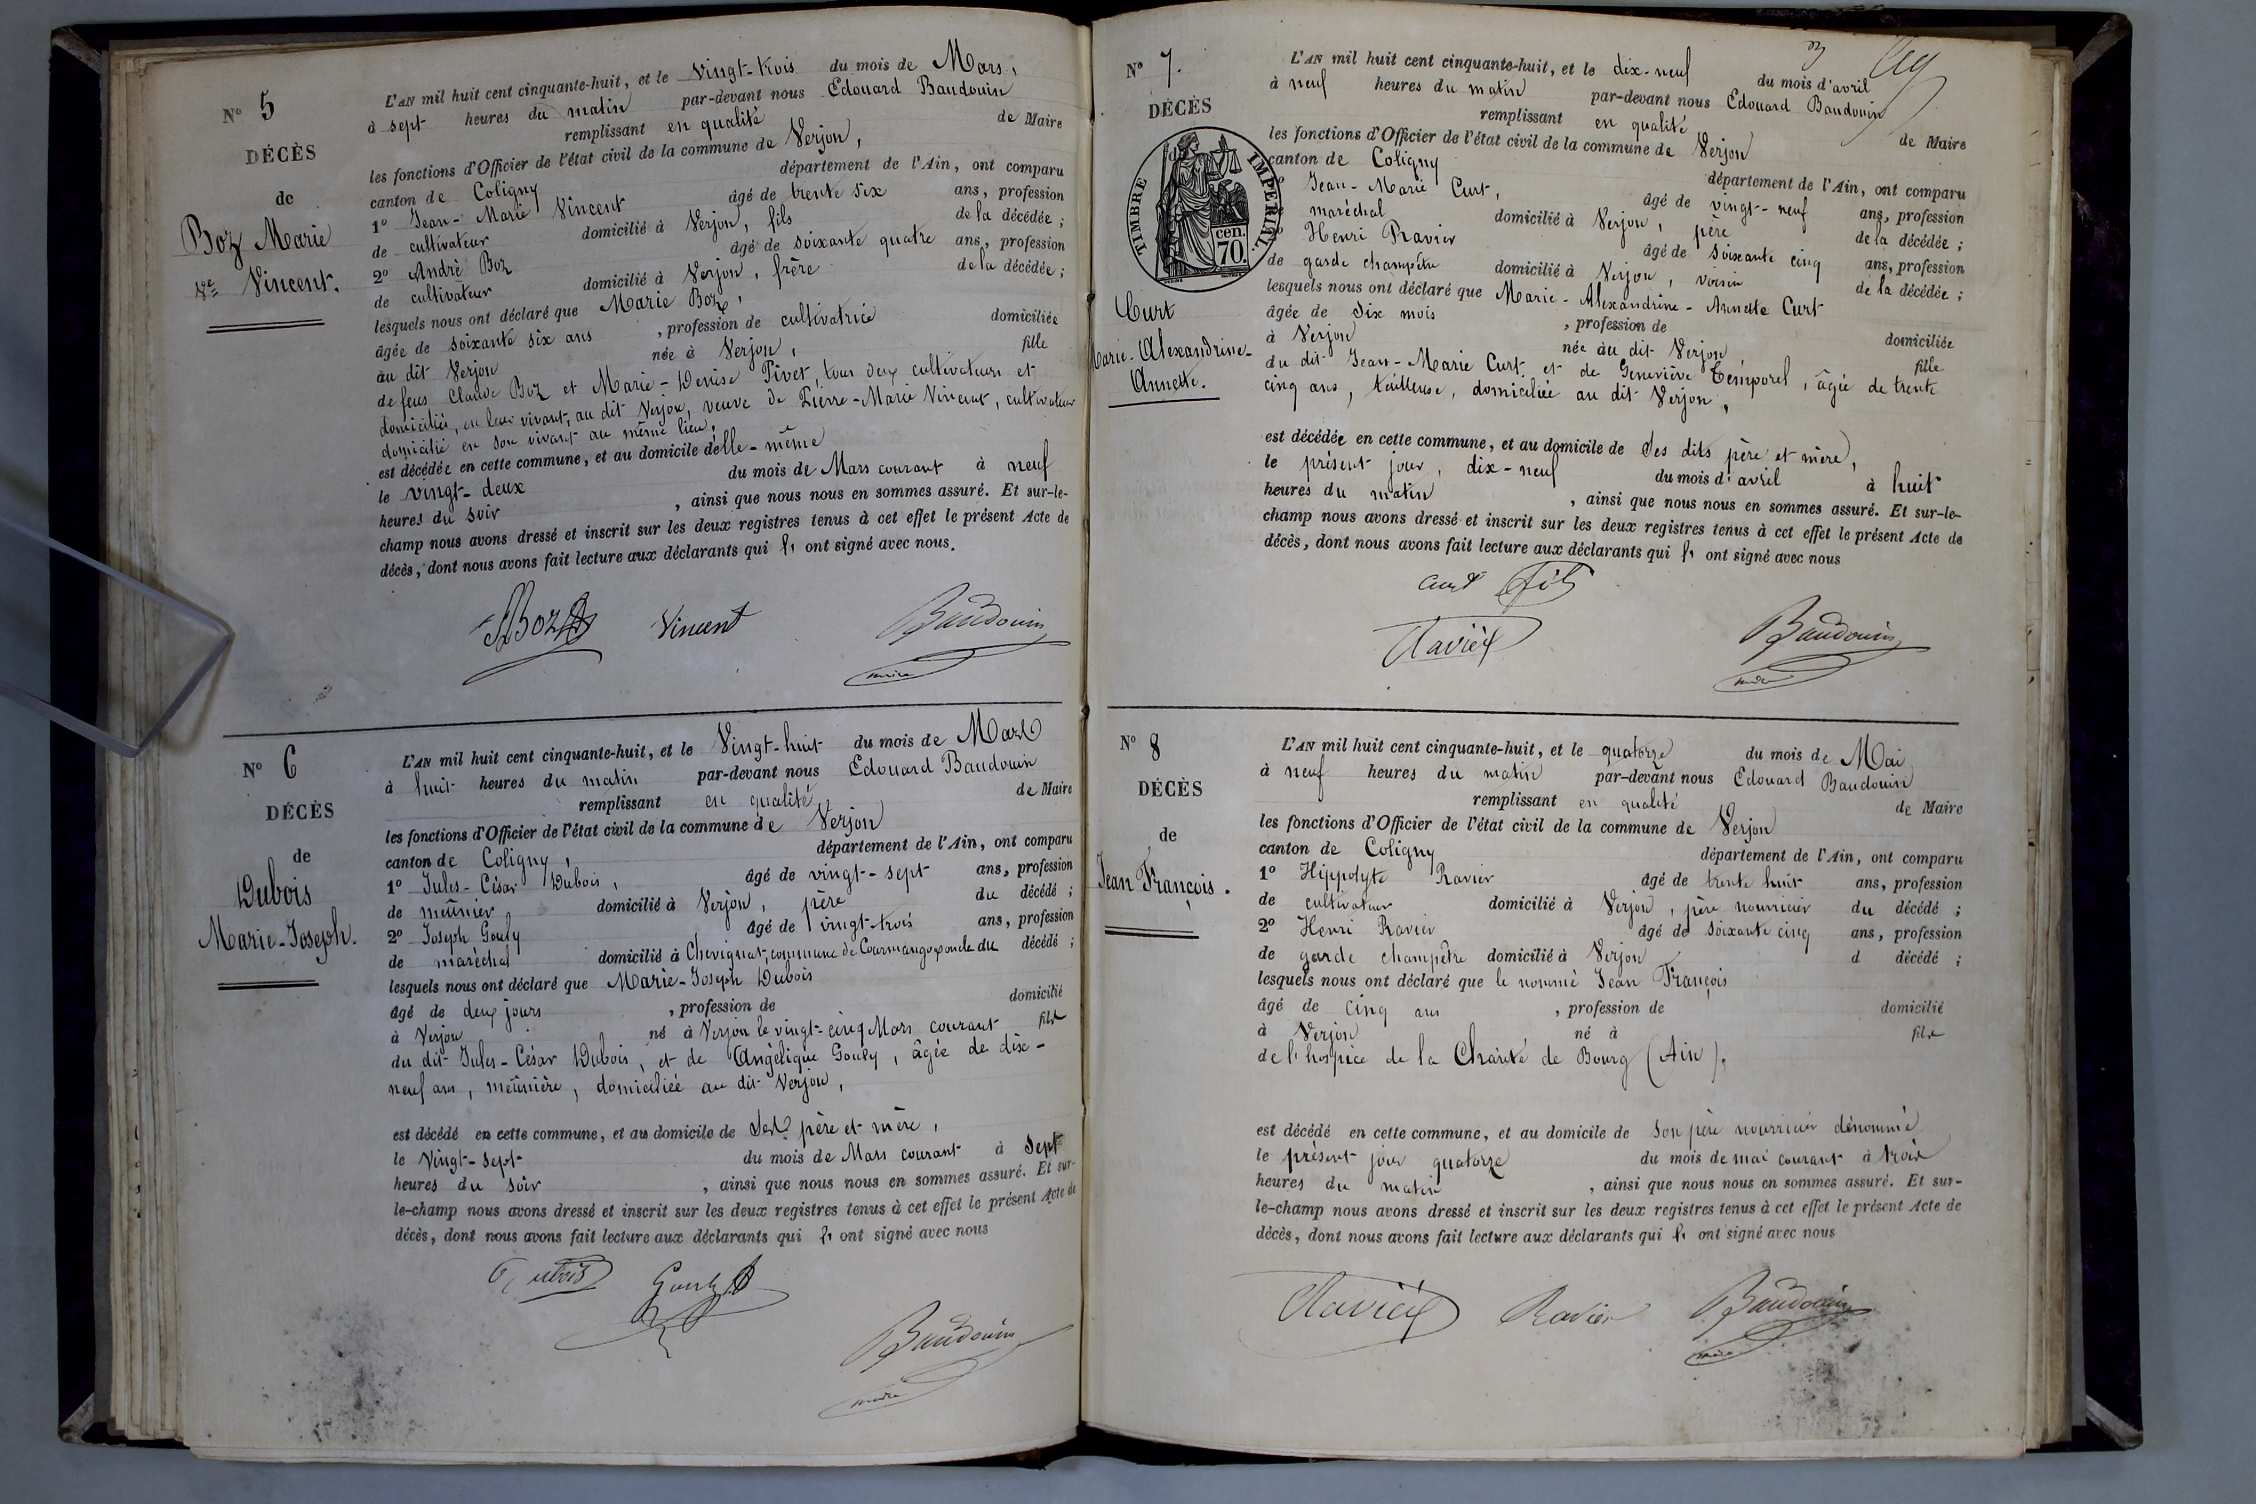 N° 5
DÉCÈS
de
Boz Marie
Ve Vincent.
L'AN mil huit cent cinquante-huit, et le vingt-trois du mois de Mars,
à sept heures du matin par-devant nous Edouard Baudouin
remplissant en qualité de Maire
les fonctions d'Officier de l'état civil de la commune de Verjon,
canton de Coligny département de l'Ain, ont comparu
1° Jean-Marie Vincent âgé de trente six ans, profession
de cultivateur domicilié à Verjon, fils de la décédée ;
2° André Boz âgé de soixante quatre ans, profession
de cultivateur domicilié à Verjon, frère de la décédée ;
lesquels nous ont déclaré que Marie Boz,
âgée de soixante six ans, profession de cultivatrice domiciliée
au dit Verjon née à Verjon, fille
de feus Claude Boz et Marie-Denise Pivet, tous deux cultivateurs et
domiciliés, en leur vivant, au dit Verjon, veuve de Pierre-Marie Vincent, cultivateur
domicilié en son vivant au même lieu,
est décédée en cette commune, et au domicile d'elle-même
le vingt-deux du mois de Mars courant à neuf
heures du soir, ainsi que nous nous en sommes assuré. Et sur-le-
champ nous avons dressé et inscrit sur les deux registres tenus à cet effet le présent Acte de
décès, dont nous avons fait lecture aux déclarants qui ont signé avec nous.
Boz Vincent Baudouin
maire
N° 6
DÉCÈS
de
Dubois
Marie-Joseph.
L'AN mil huit cent cinquante-huit, et le Vingt-huit du mois de Mars
à huit heures du matin par-devant nous Edouard Baudouin
remplissant en qualité de Maire
les fonctions d'Officier de l'état civil de la commune de Verjon
canton de Coligny, département de l'Ain, ont comparu
1° Jules-César Dubois, âgé de vingt-sept ans, profession
de meûnier domicilié à Verjon, père du décédé ;
2° Joseph Gouly âgé de vingt-trois ans, profession
de maréchal domicilié à Chevignat, commune de Courmangoux oncle du décédé ;
lesquels nous ont déclaré que Marie-Joseph Dubois
âgé de deux jours, profession de domicilié
à Verjon né à Verjon le vingt-cinq Mars courant fils
du dit Jules-César Dubois, et de Angélique Gouly, âgée de dix-
neuf ans, meûnière, domiciliée au dit Verjon,
est décédé en cette commune, et au domicile de ses père et mère,
le Vingt-sept du mois de Mars courant à sept
heures du soir, ainsi que nous nous en sommes assuré. Et sur-
le-champ nous avons dressé et inscrit sur les deux registres tenus à cet effet le présent Acte de
décès, dont nous avons fait lecture aux déclarants qui ont signé avec nous
Dubois Gouly
Baudouin
maire
N° 7.
DÉCÈS
TIMBRE IMPÉRIAL.
cen.
70.
Curt
Marie-Alexandrine-
Annette.
L'AN mil huit cent cinquante-huit, et le dix-neuf du mois d'avril
à neuf heures du matin par-devant nous Edouard Baudouin
remplissant en qualité de Maire
les fonctions d'Officier de l'état civil de la commune de Verjon
canton de Coligny département de l'Ain, ont comparu
Jean-Marie Curt, âgé de vingt-neuf ans, profession
maréchal domicilié à Verjon, père de la décédée ;
Henri Ravier âgé de soixante cinq ans, profession
de garde champêtre domicilié à Verjon, voisin de la décédée ;
lesquels nous ont déclaré que Marie-Alexandrine-Annette Curt
âgée de six mois, profession de domiciliée
à Verjon née au dit Verjon, fille
du dit Jean-Marie Curt et de Geneviève Temporel, âgée de trente
cinq ans, tailleuse, domiciliée au dit Verjon,
est décédée en cette commune, et au domicile de ses dits père et mère,
le présent jour, dix-neuf du mois d'avril à huit
heures du matin, ainsi que nous nous en sommes assuré. Et sur-le-
champ nous avons dressé et inscrit sur les deux registres tenus à cet effet le présent Acte de
décès, dont nous avons fait lecture aux déclarants qui ont signé avec nous
Curt fils
Ravier Baudouin
maire
N° 8
DÉCÈS
de
Jean François.
L'AN mil huit cent cinquante-huit, et le quatorze du mois de Mai
à neuf heures du matin par-devant nous Edouard Baudouin
remplissant en qualité de Maire
les fonctions d'Officier de l'état civil de la commune de Verjon
canton de Coligny département de l'Ain, ont comparu
1° Hippolyte Ravier âgé de trente huit ans, profession
de cultivateur domicilié à Verjon, père nourricier du décédé ;
2° Henri Ravier âgé de soixante cinq ans, profession
de garde champêtre domicilié à Verjon d décédé ;
lesquels nous ont déclaré que le nommé Jean François
âgé de cinq ans, profession de domicilié
à Verjon né à fils
de l'hospice de la Charité de Bourg (Ain),
est décédé en cette commune, et au domicile de son père nourricier dénommé
le présent jour quatorze du mois de mai courant à trois
heures du matin, ainsi que nous nous en sommes assuré. Et sur-
le-champ nous avons dressé et inscrit sur les deux registres tenus à cet effet le présent Acte de
décès, dont nous avons fait lecture aux déclarants qui ont signé avec nous
Ravier Ravier Baudouin
maire